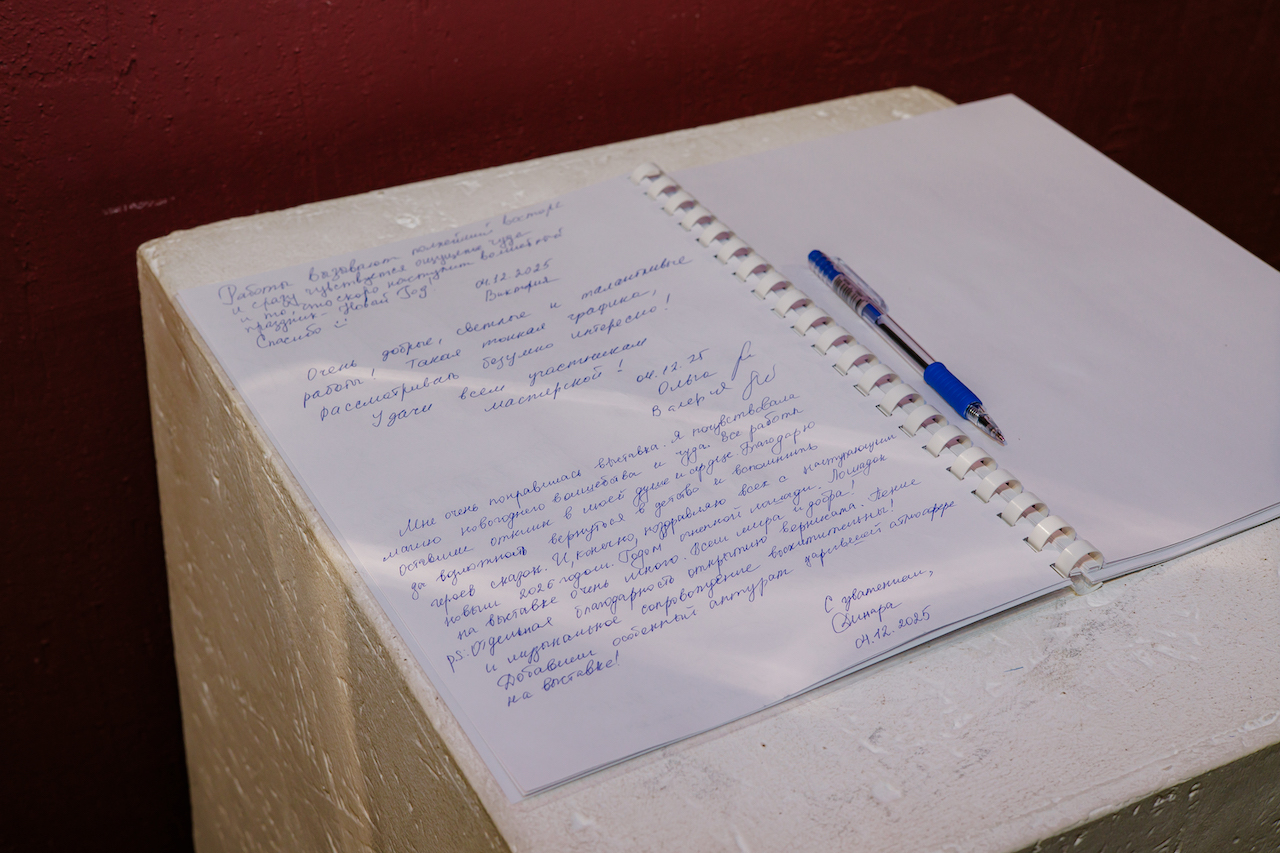 Работы вызывают полнейший восторг
и сразу чувствуется ощущение чуда
и то, что скоро наступит волшебный
праздник - Новый Год!
Спасибо
04.12.2025
Виктория
Очень добрые, светлые и талантливые
работы! Такая тонкая графика,
рассматривать безумно интересно!
Удачи всем участникам
мастерской!
04.12.25
Ольга
Валерия
Мне очень понравилась выставка. Я почувствовала
магию новогоднего волшебства и чуда. Все работы
оставили отклик в моей душе и сердце. Благодарю
за возможность вернуться в детство и вспомнить
героев сказок. И, конечно, поздравляю всех с наступающим
новым 2026 годом. Годом огненной лошади. Лошадок
на выставке очень много. Всем мира и добра!
ps: Отдельная благодарность открытию вернисажа. Пение
и музыкальное сопровождение восхитительны!
Добавили особенный антураж царившей атмосфере
на выставке!
С уважением,
Динара
04.12.2025